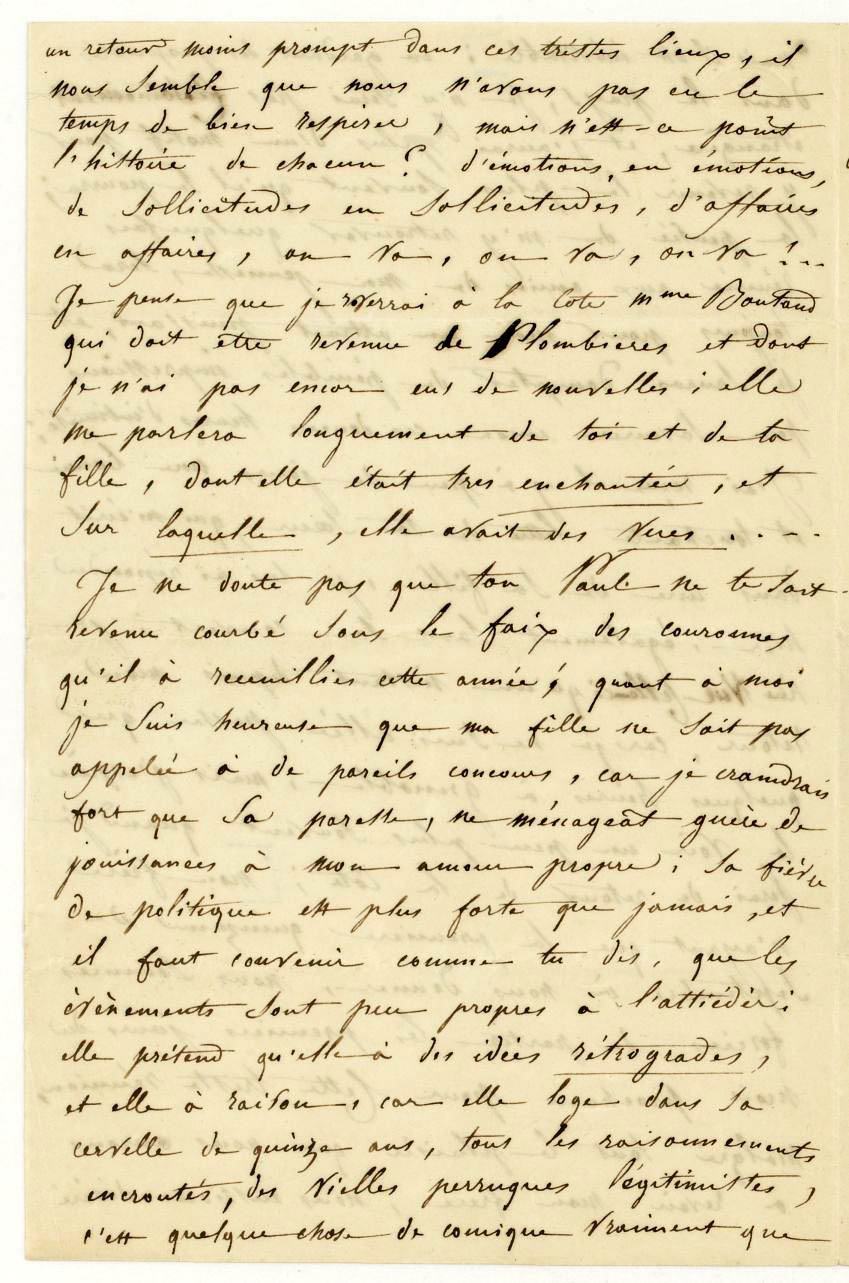 un retour moins prompt dans ces tristes lieux, il
nous semble que nous n'avons pas eu le
temps de bien respirer, mais n'est-ce point
l'histoire de chacun ? d'émotions, en émotions,
de sollicitudes en sollicitudes, d'affaires
en affaires, on va, on va, on va !...
Je pense que je reverrai à la Cote Mme Boutaud
qui doit etre revenue de Plombieres et dont
je n'ai pas encor eu de nouvelles ; elle
me parlera longuement de toi et de ta
fille, dont elle était tres enchantée, et
sur laquelle, elle avait des vues . . - -
Je ne doute pas que ton Paul ne te soit
revenu courbé sous le faix des couronnes
qu'il à recueillies cette année ; quant à moi
je suis heureuse que ma fille ne soit pas
appelée à de pareils concours, car je craindrais
fort que sa paresse, ne ménageât guère de
jouissances à mon amour propre ; sa fièvre
de politique est plus forte que jamais, et
il faut convenir comme tu dis, que les
évènements sont peu propres à l'attiédir ;
elle prétend qu'elle à des idées rétrogrades,
et elle à raison, car elle loge dans sa
cervelle de quinze ans, tous les raisonnements
encroutés, des vielles perruques légitimistes,
c'est quelque chose de comique vraiment que